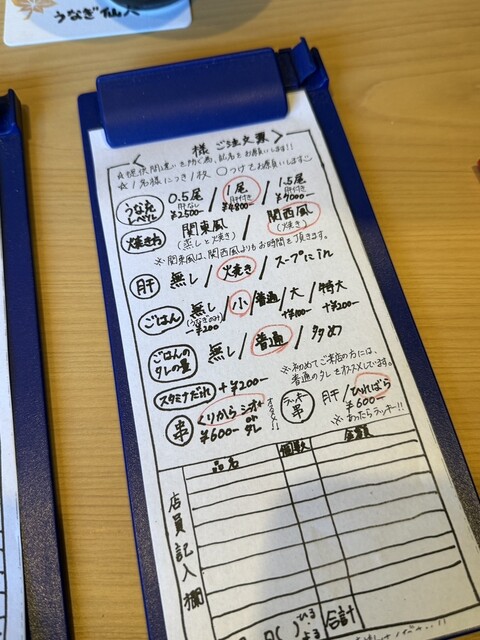 うなぎ 仙人
様 ご注文票
☆提供間違いを防ぐ為、記名をお願いします!!
☆1名様につき1枚 ○つけてお願いします
うな丸レベル 0.5尾 肝なし ¥2500- / 1尾 肝付き ¥4800- / 1.5尾 肝付き ¥7000-
焼き方 関東風 (蒸しと焼き) / 関西風 (焼き)
※関東風は、関西風よりもお時間を頂きます。
肝 無し / 焼き / スープにin
ごはん 無し (うなぎのみ) -¥200 / 小 / 普通 / 大 +¥100- / 特大 +¥200-
ごはんのタレの量 無し / 普通 / 多め
※初めてご来店の方には、
普通のタレをオススメしています。
スタミナだれ +¥200-
串 くりから シオ or タレ ¥600-
ラッキー串 肝 / ひればら ¥600-
※あったらラッキー!!
店員記入欄
品名 個数 金額
ひる
よる
合計